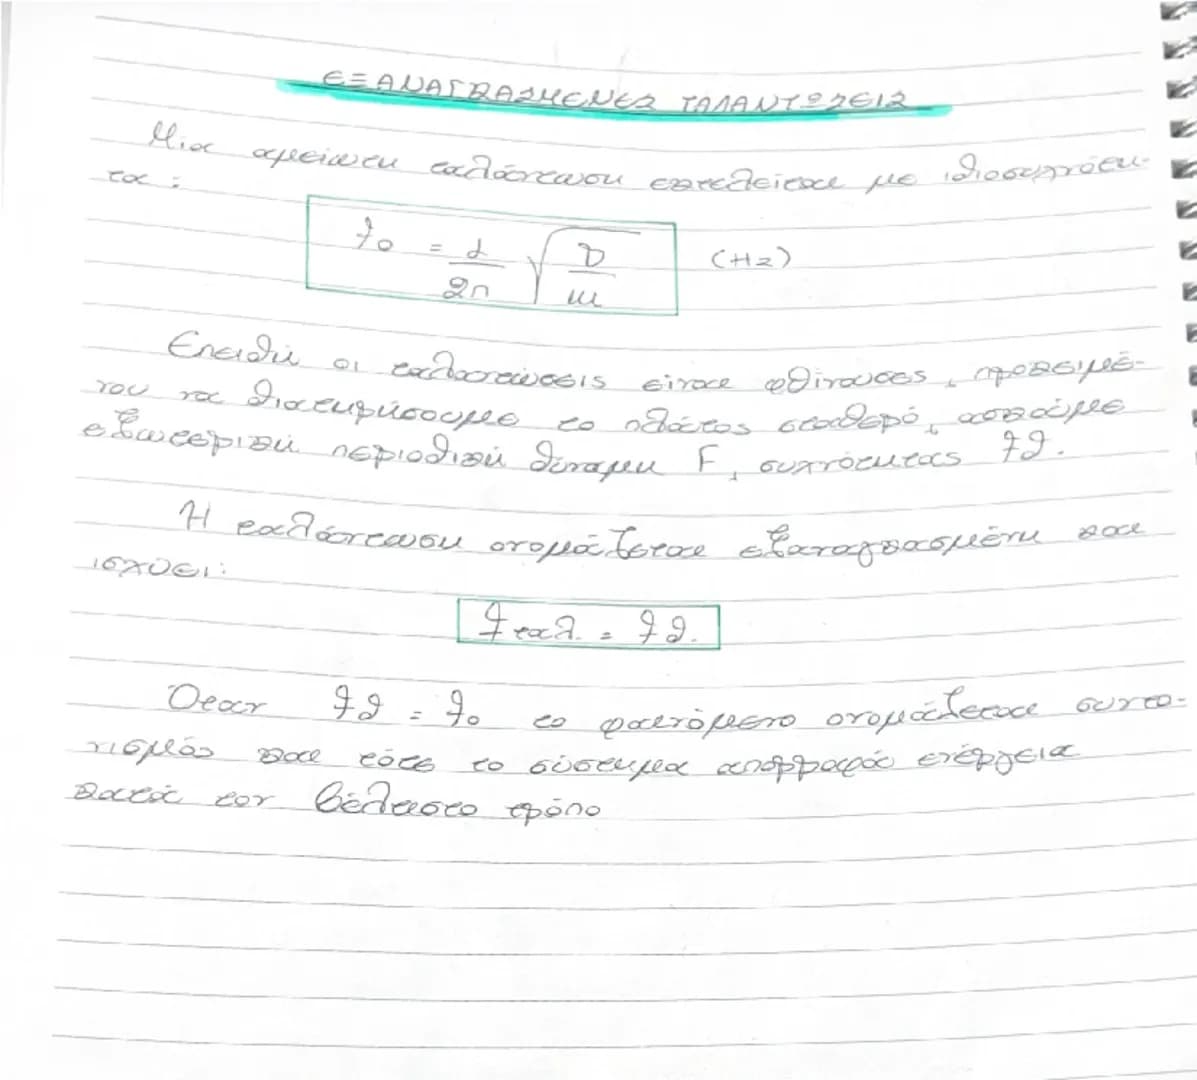 ΕΞΑΝΑΓΚΑΣΜΕΝΕΣ ΤΑΛΑΝΤΩΣΕΙΣ
Μια αμείωτη ταλάντωση εκτελείται με ιδιοσυχνότη-
τα :
f₀ = 1/2π √(D/m) (Hz)
Επειδή οι ταλαντώσεις είναι φθίνουσες, προκειμέ-
νου να διατηρήσουμε το πλάτος σταθερό, ασκούμε
εξωτερική περιοδική δύναμη F, συχνότητας fδ.
Η ταλάντωση ονομάζεται εξαναγκασμένη και
ισχύει:
fταλ. = fδ.
Όταν fδ = f₀ το φαινόμενο ονομάζεται συντο-
νισμός και τότε το σύστημα απορροφά ενέργεια
κατά τον βέλτιστο τρόπο